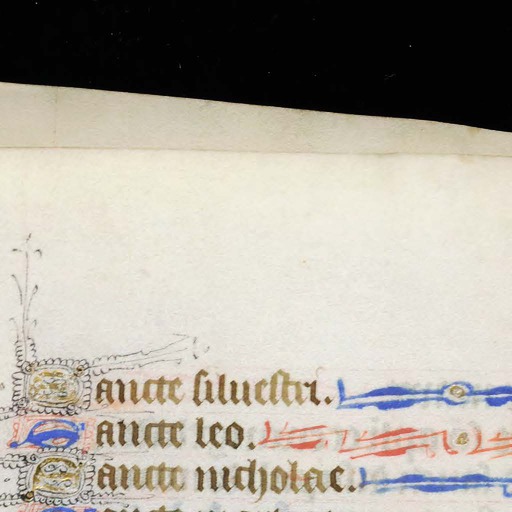 Sancte siluestri.
Sancte leo.
Sancte nicholae.